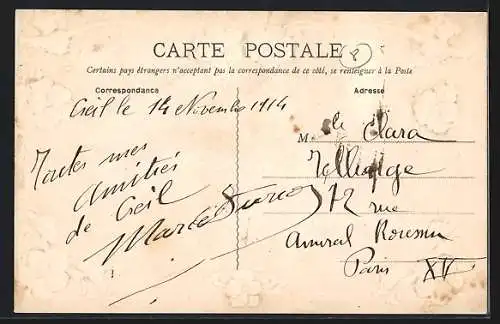 CARTE POSTALE
Certains pays étrangers n'acceptant pas la correspondance de ce côté, se renseigner à la Poste
Correspondance
Creil le 14 Novembre 1914
Toutes mes
amitiés
de Creil
Marcel
Adresse
M lle Clara
72 rue
Amiral Roussin
Paris XV